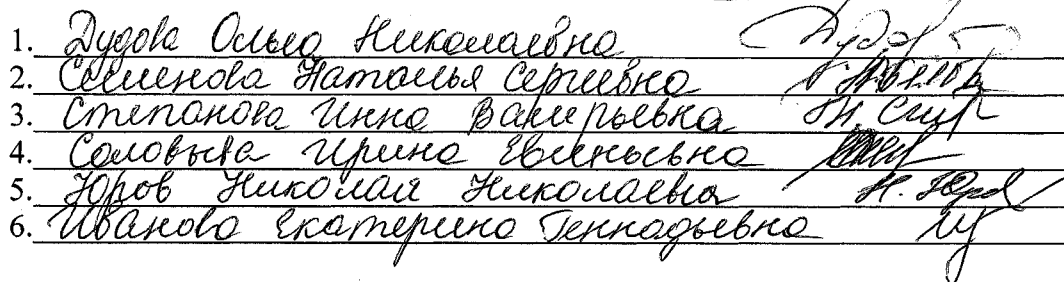 1. Дудова Ольга Николаевна
2. Семенова Наталья Сергеевна
3. Степанова Инна Валерьевна
4. Соловьева Ирина Евгеньевна
5. Юров Николай Николаевич Н. Юров
6. Иванова Екатерина Геннадьевна